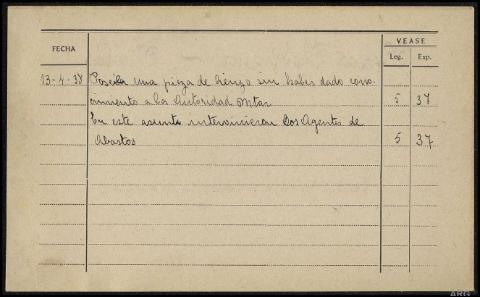 VEASE
FECHA
Leg. Exp.
13-4-38 Poseía una pieza de lienzo sin haber dado cono-
cimiento a la Autoridad Mtar 5 37
En este asunto intervinieron los Agentes de
Abastos 5 37